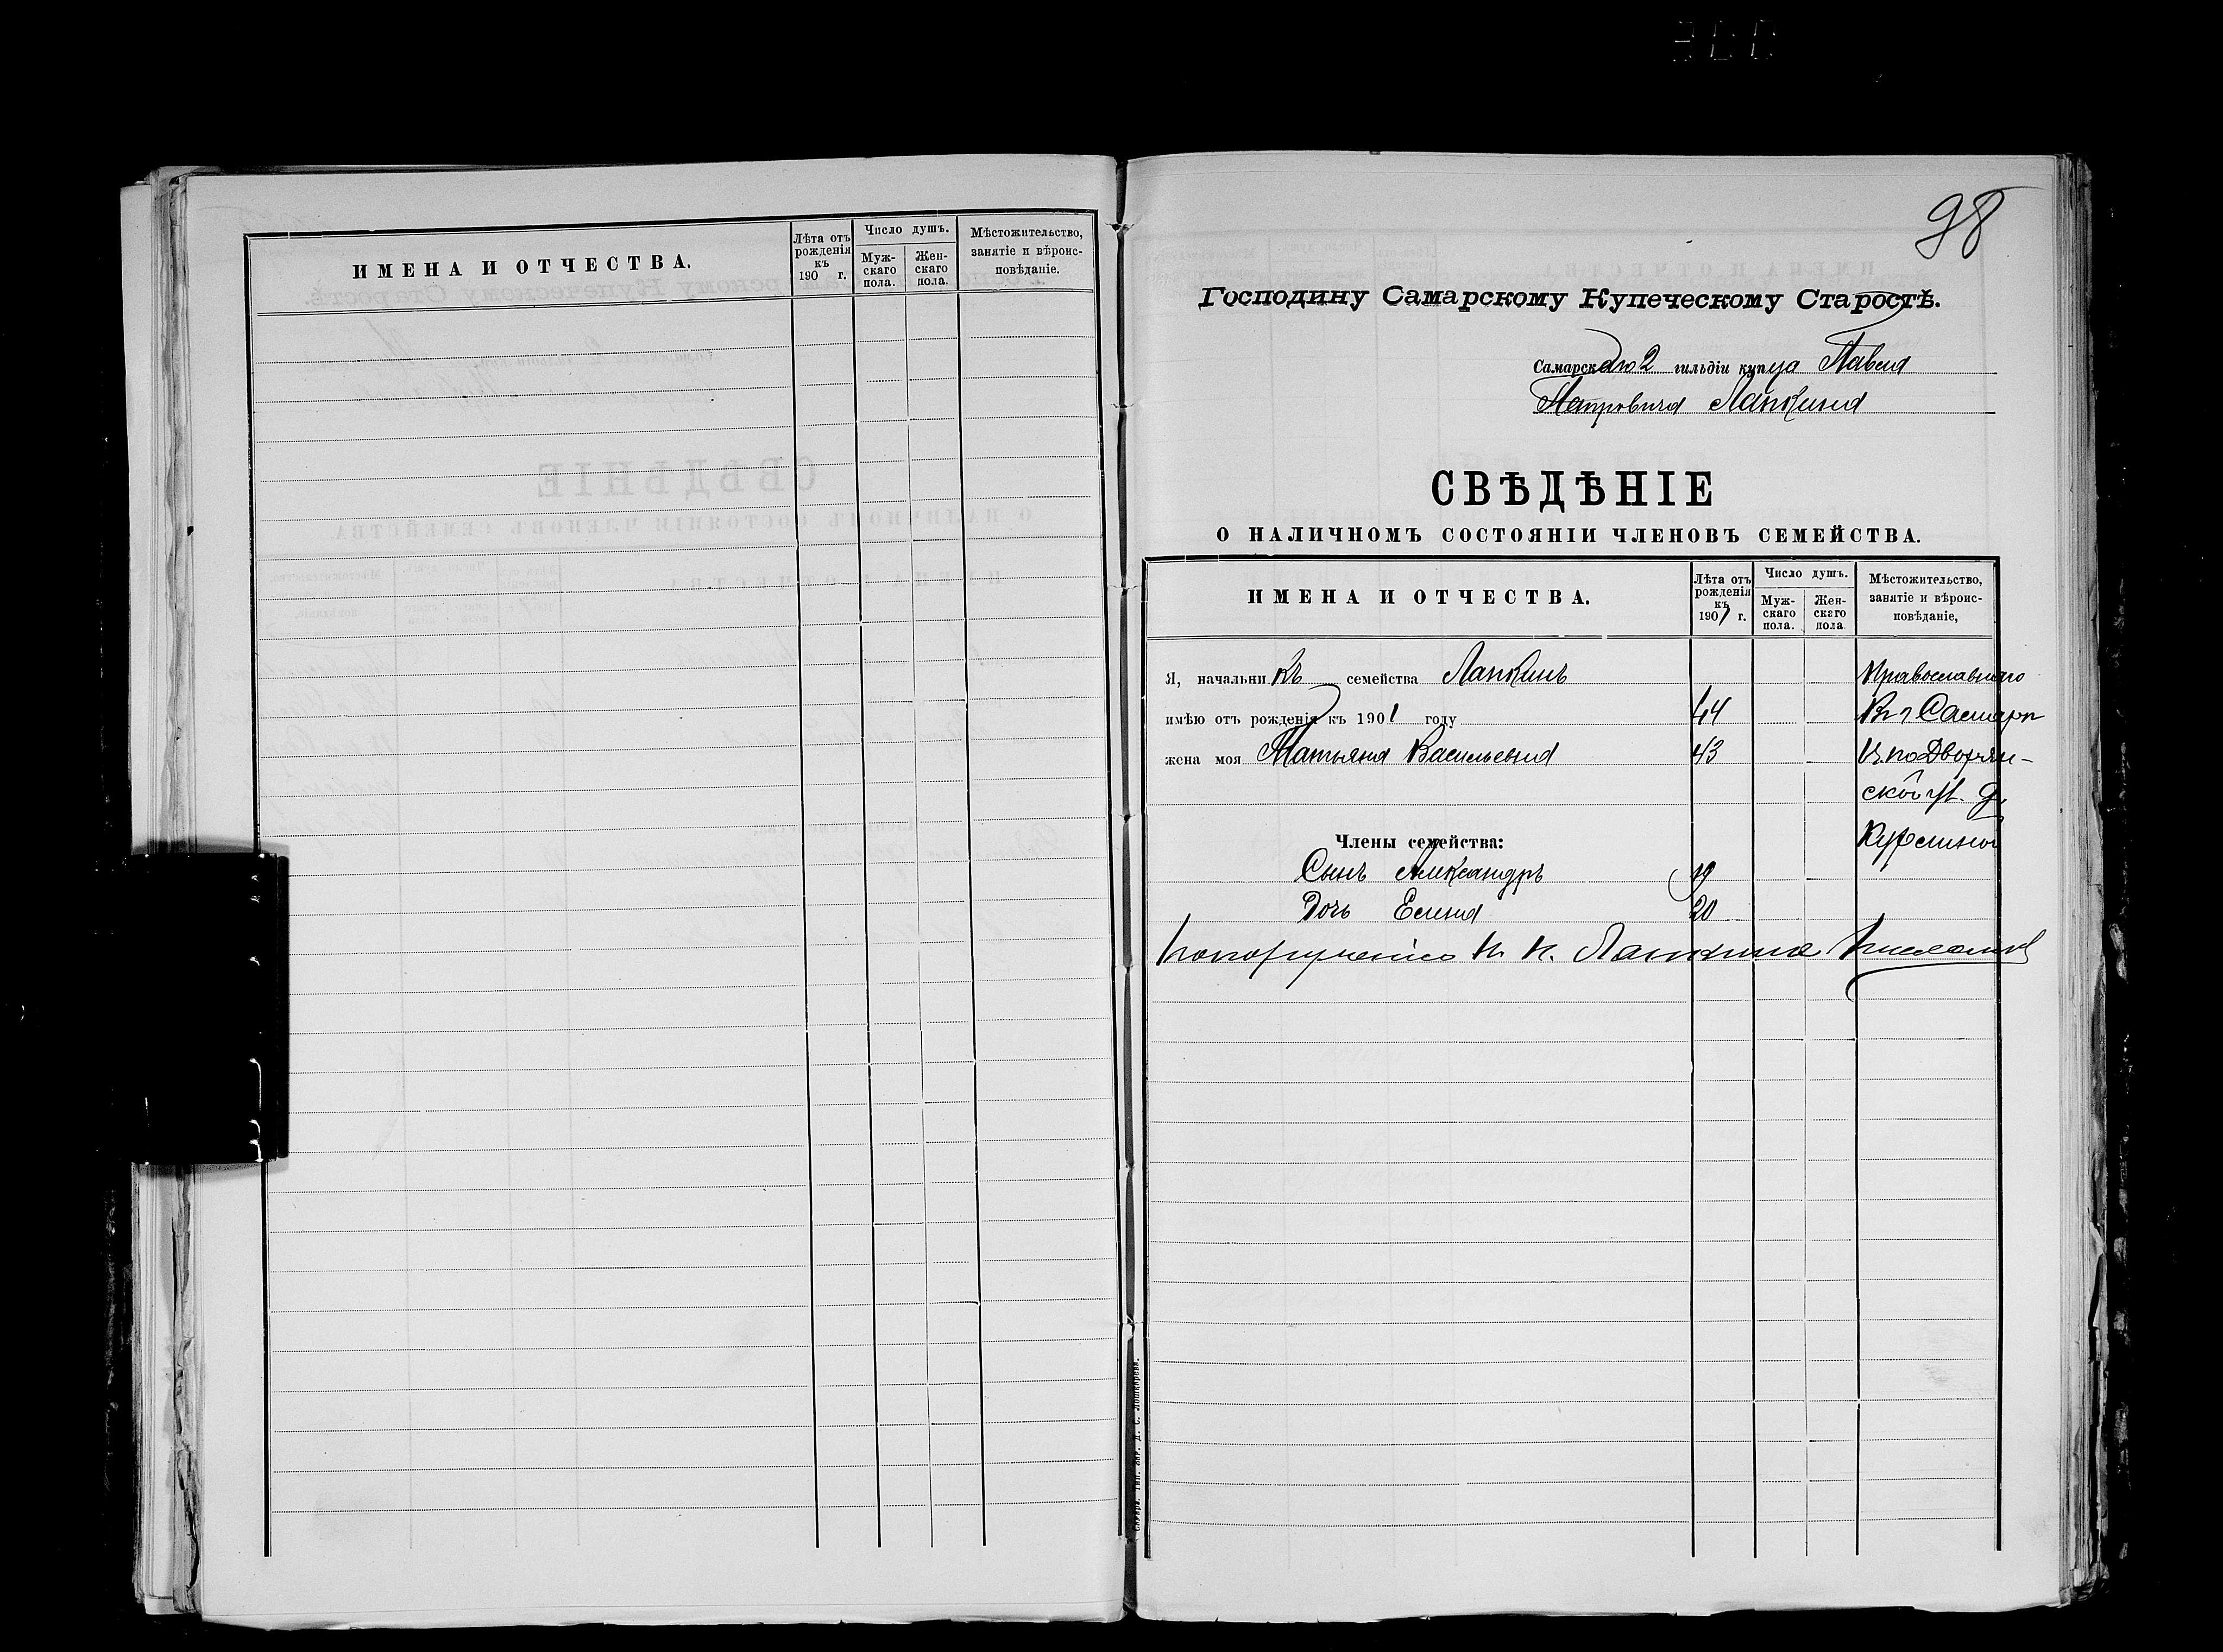 ИМЕНА И ОТЧЕСТВА.
Лѣта отъ рожденія къ 190 г.
Число душъ.
Мужскаго пола.
Женскаго пола.
Мѣстожительство, занятіе и вѣроисповѣданіе.
98
Господину Самарскому Купеческому Старостѣ.
Самарскаго 2 гильдіи купца Павла
Петровича Лапкина
СВѢДѢНІЕ
О НАЛИЧНОМЪ СОСТОЯНІИ ЧЛЕНОВЪ СЕМЕЙСТВА.
ИМЕНА И ОТЧЕСТВА.
Лѣта отъ рожденія къ 1901 г.
Число душъ.
Муж-
скаго
пола.
Жен-
скаго
пола
Мѣстожительство,
занятіе и вѣроис-
повѣданіе,
Я, начальникъ семейства Лапкинъ Православнаго
имѣю отъ рожденія къ 1901 году 44 В г Самарѣ
жена моя Татьяна Васильевна 43 по Дворян-
ской ул. д.
Члены семейства: Курлиной
Сынъ Александръ 19
Дочь Елена 20
По порученію П. П. Лапкина
Самара. Тип. Зав. Д. С. Лошкарева.